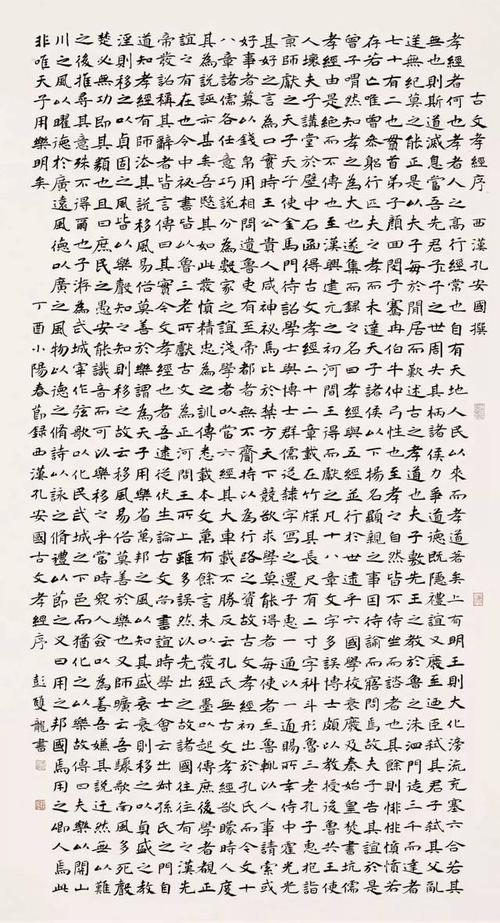 古文孝經序 西漢孔安國撰
孝經者何也孝者人之高行經常也自有天地人民以來而孝道著矣上有明王則大化滂流充塞六合若其
無也則斯道滅息當吾先君孔子之世周失其柄諸侯力爭道德既隱禮誼又廢至乃臣弒其君子弒其父亂
逆無紀莫之能正是以夫子每於閒居而歎述古之孝道也夫子敷先王之教於魯之洙泗門徒三千而達者
七十有二也貫首弟子顏回閔子騫冉伯牛仲弓性也至孝之自然皆不待諭而寤者也其餘則悱悱憤憤若
存若亡唯曾參躬行匹夫之孝而未達天子諸侯以下揚名顯親之事因侍坐而諮問焉故夫子告其誼於是
曾子喟然知孝之為大也遂集而錄之名曰孝經與五經並行於世逮乎六國學校衰廢及秦始皇焚書坑儒
孝經由是絕而不傳也至漢興建元之初河間王得而獻之凡十八章文字多誤博士頗以教授後魯恭王使
人壞夫子講堂於壁中石函得古文孝經二十二章載在竹牒其長尺有二寸字科斗形魯三老孔子惠抱詣
京師獻之天子天子使金馬門待詔學士與博士群儒從隸字寫之還子惠一通以一通賜所幸侍中霍光光
甚好之言為口實時王公貴人咸神祕焉比於禁方天下競欲求學莫能得者每使者至魯輒以人事請索或
好事者募以錢帛用相問遺魯吏有至帝都者無不齎持以為行路之資故古文孝經初出於孔氏而今文十
八章諸儒各任意巧說分為數家之誼淺學者以當六經其大車載不勝反云孔氏無古文孝經欲矇時人度
其為說誣亦甚矣吾愍其如此發憤精思為之訓傳悉載本文萬有餘言朱以發經墨以起傳庶後學者覩正
誼之有在也今中祕書皆以魯三老所獻古文為正河間王所上雖多誤然以先出之故諸國往往有之漢先
帝發詔稱其辭者皆言傳曰其實今文孝經也昔吾逮從伏生論古文尚書誼時學士會云出叔孫氏之門自
道知孝經有師法其說移風易俗莫善於樂謂為天子用樂省萬邦之風以知其盛衰衰則移之以貞盛之教
淫則移之以貞固之風皆以樂聲知之知則移之故云移風易俗莫善於樂也又師曠云吾驟歌南風多死聲
楚必無功即其類也且曰庶民之愚安能識音而可以樂移之乎當時眾人僉以為善吾嫌其說迂然無以難
之後推尋其意殊不得爾也子游為武城宰作弦歌以化民武城之下邑而猶化之以樂故傳曰夫樂以關山
川之風以曜德於廣遠風德以廣之風物以聽之脩詩以詠之脩禮以節之又曰用之邦國焉用之鄉人焉此
非唯天子用樂明矣 丁酉小陽春節錄西漢孔安國古文孝經序 彭雙龍書